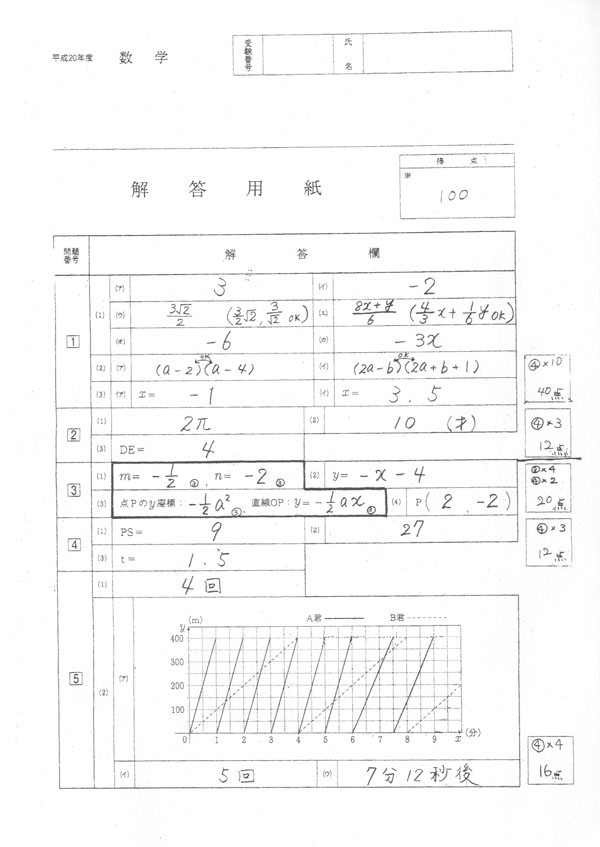 平成20年度 数学
受験番号 氏名
解答用紙
得点
※
100
問題番号 解答欄
1 (1) (ア) 3 (イ) -2
(ウ) 3√2/2 (3/2√2, 3/√2 OK) (エ) 8x+y/6 (4/3x+1/6y OK)
(オ) -6 (カ) -3x
(2) (ア) (a-2)(a-4) OK (イ) (2a-b)(2a+b+1) OK
(3) (ア) x= -1 (イ) x= 3, 5
④×10
40点
2 (1) 2π (2) 10 (才)
(3) DE= 4
④×3
12点
3 (1) m= -1/2 ②, n= -2 ② (2) y= -x-4
(3) 点Pのy座標: -1/2a² ②, 直線OP: y= -1/2ax ② (4) P(2, -2)
②×4
④×2
20点
4 (1) PS= 9 (2) 27
(3) t= 1.5
④×3
12点
5 (1) 4回
(2) (ア)
y (m) A君 B君
400
300
200
100
0 1 2 3 4 5 6 7 8 9 x (分)
(イ) 5回 (ウ) 7分12秒後
④×4
16点